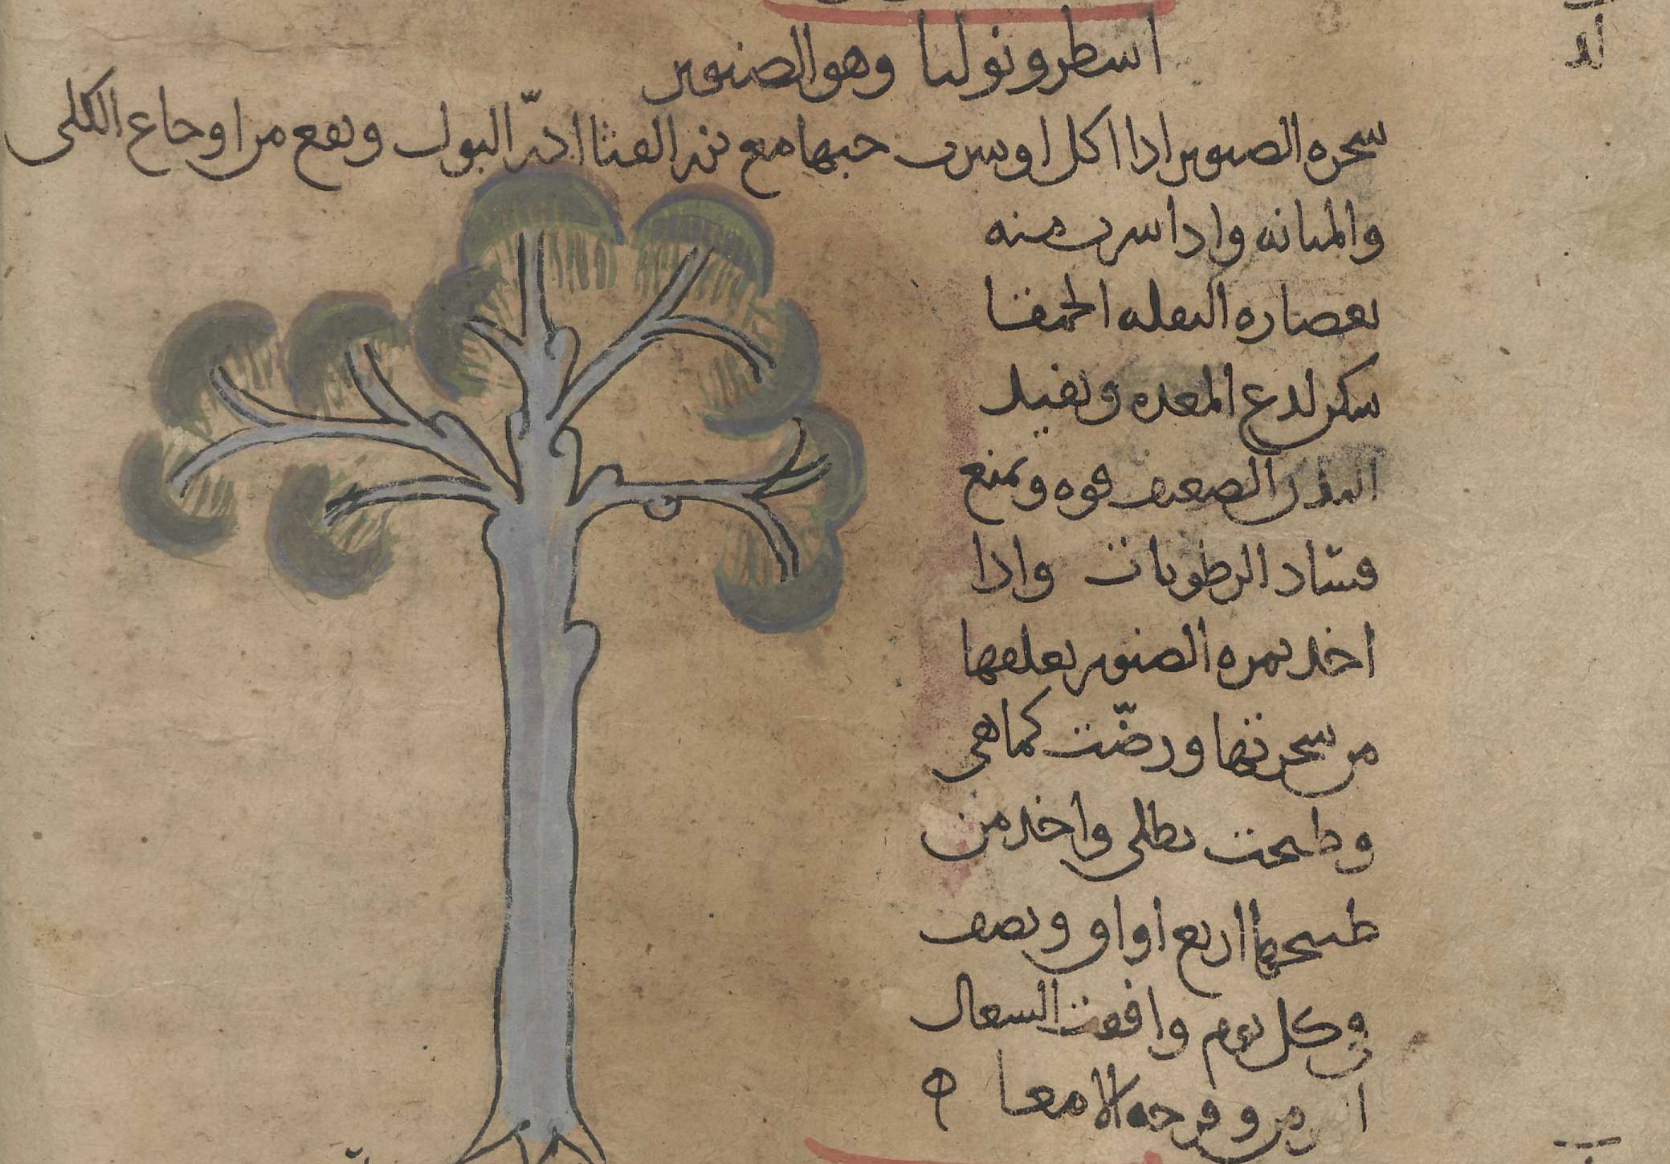 اسطرونوليا وهو الصنوبر
شجره الصنوبر اذا اكل او شرب حبها مع بزر القثا ادرّ البول ونفع من اوجاع الكلى
والمثانه واذا شرب منه
بعصاره البقله الحمقا
سكن لذع المعده ويفيد
البدن الضعيف قوه ويمنع
فساد الرطوبات واذا
اخذ ثمره الصنوبر بعلفها
من شجرتها ورضّت كما هي
وطبخت بطلى واخذ من
طبيخها اربع اواق ونصف
في كل يوم وافقت السعال
وقرحه الامعا